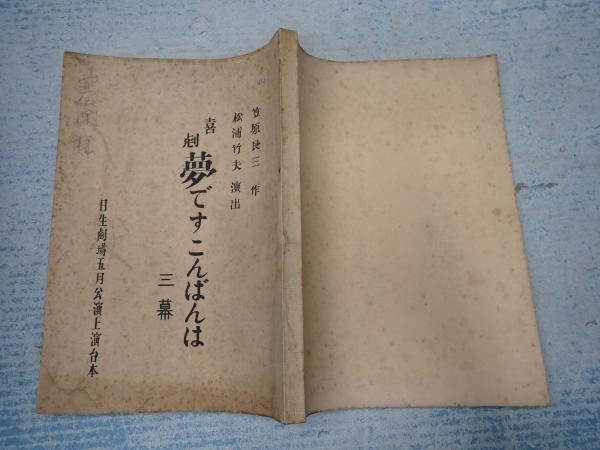 笠原良三 作
松浦竹夫 演出
喜劇 夢ですこんばんは
三幕
日生劇場五月公演上演台本
様